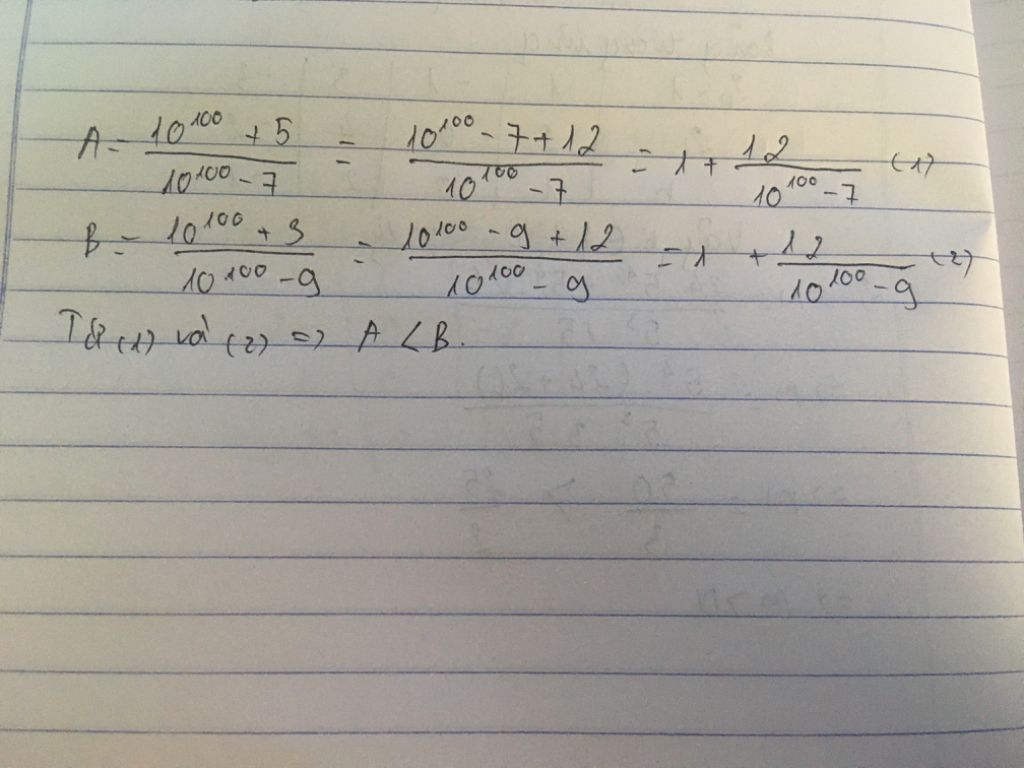 A = \frac{10^{100} + 5}{10^{100} - 7} = \frac{10^{100} - 7 + 12}{10^{100} - 7} = 1 + \frac{12}{10^{100} - 7} (1)
B = \frac{10^{100} + 3}{10^{100} - 9} = \frac{10^{100} - 9 + 12}{10^{100} - 9} = 1 + \frac{12}{10^{100} - 9} (2)
Từ (1) và (2) => A < B.